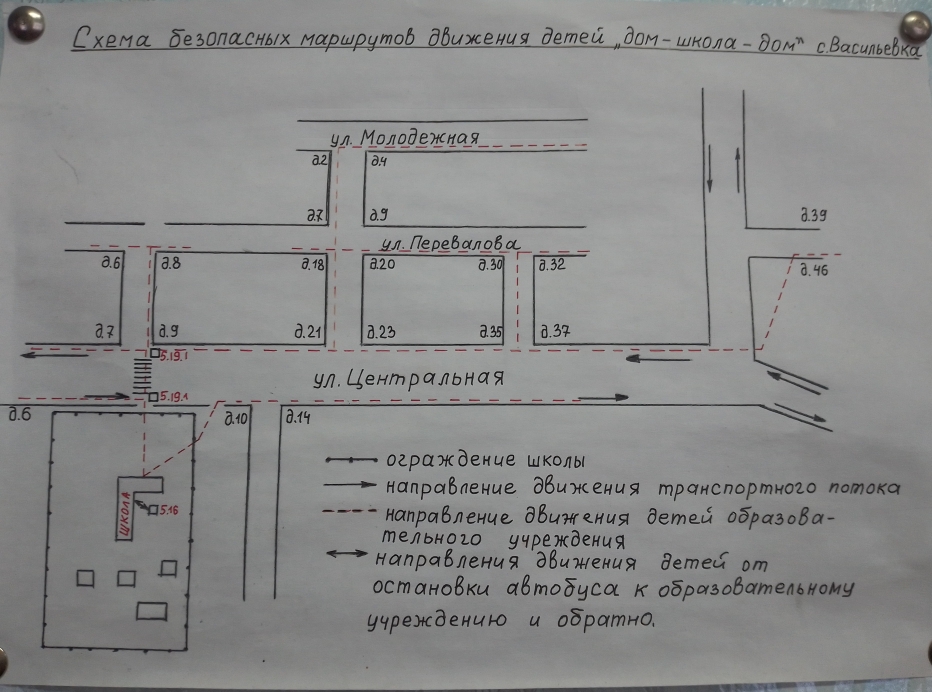 Схема безопасных маршрутов движения детей „дом-школа-дом" с.Васильевка
ул. Молодежная
д.2 д.4
д.7 д.9
д.39
ул. Перевалова
д.6 д.8 д.18 д.20 д.30 д.32
д.46
д.7 д.9 д.21 д.23 д.35 д.37
5.19.1
ул. Центральная
5.19.1
д.6 д.10 д.14
ограждение школы
направление движения транспортного потока
школа
5.16
направление движения детей образова-
тельного учреждения
направления движения детей от
остановки автобуса к образовательному
учреждению и обратно.